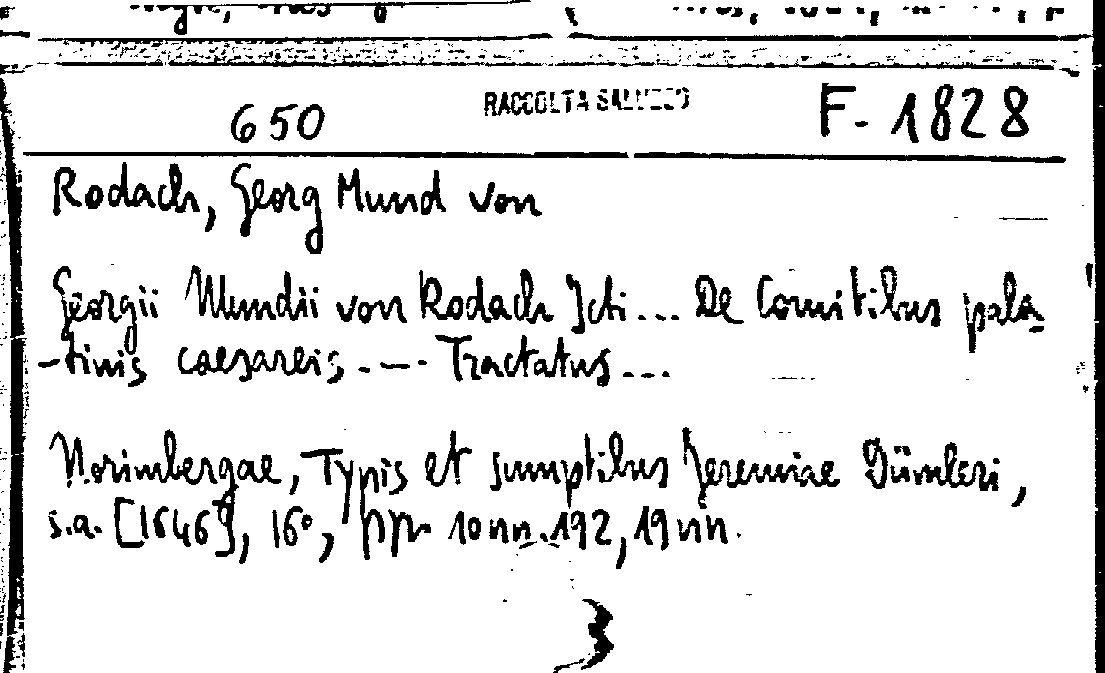 650 RACCOLTA SALUZZO F-1828
Rodach, Georg Mund von
Georgii Mundii von Rodach Jcti... De Comitibus pala-
-tinis caesareis.-.-. Tractatus...
Norimbergae, Typis et sumptibus Jeremiae Dümleri,
s.a. [1646], 16°, pp. 10nn.192, 19nn.
3